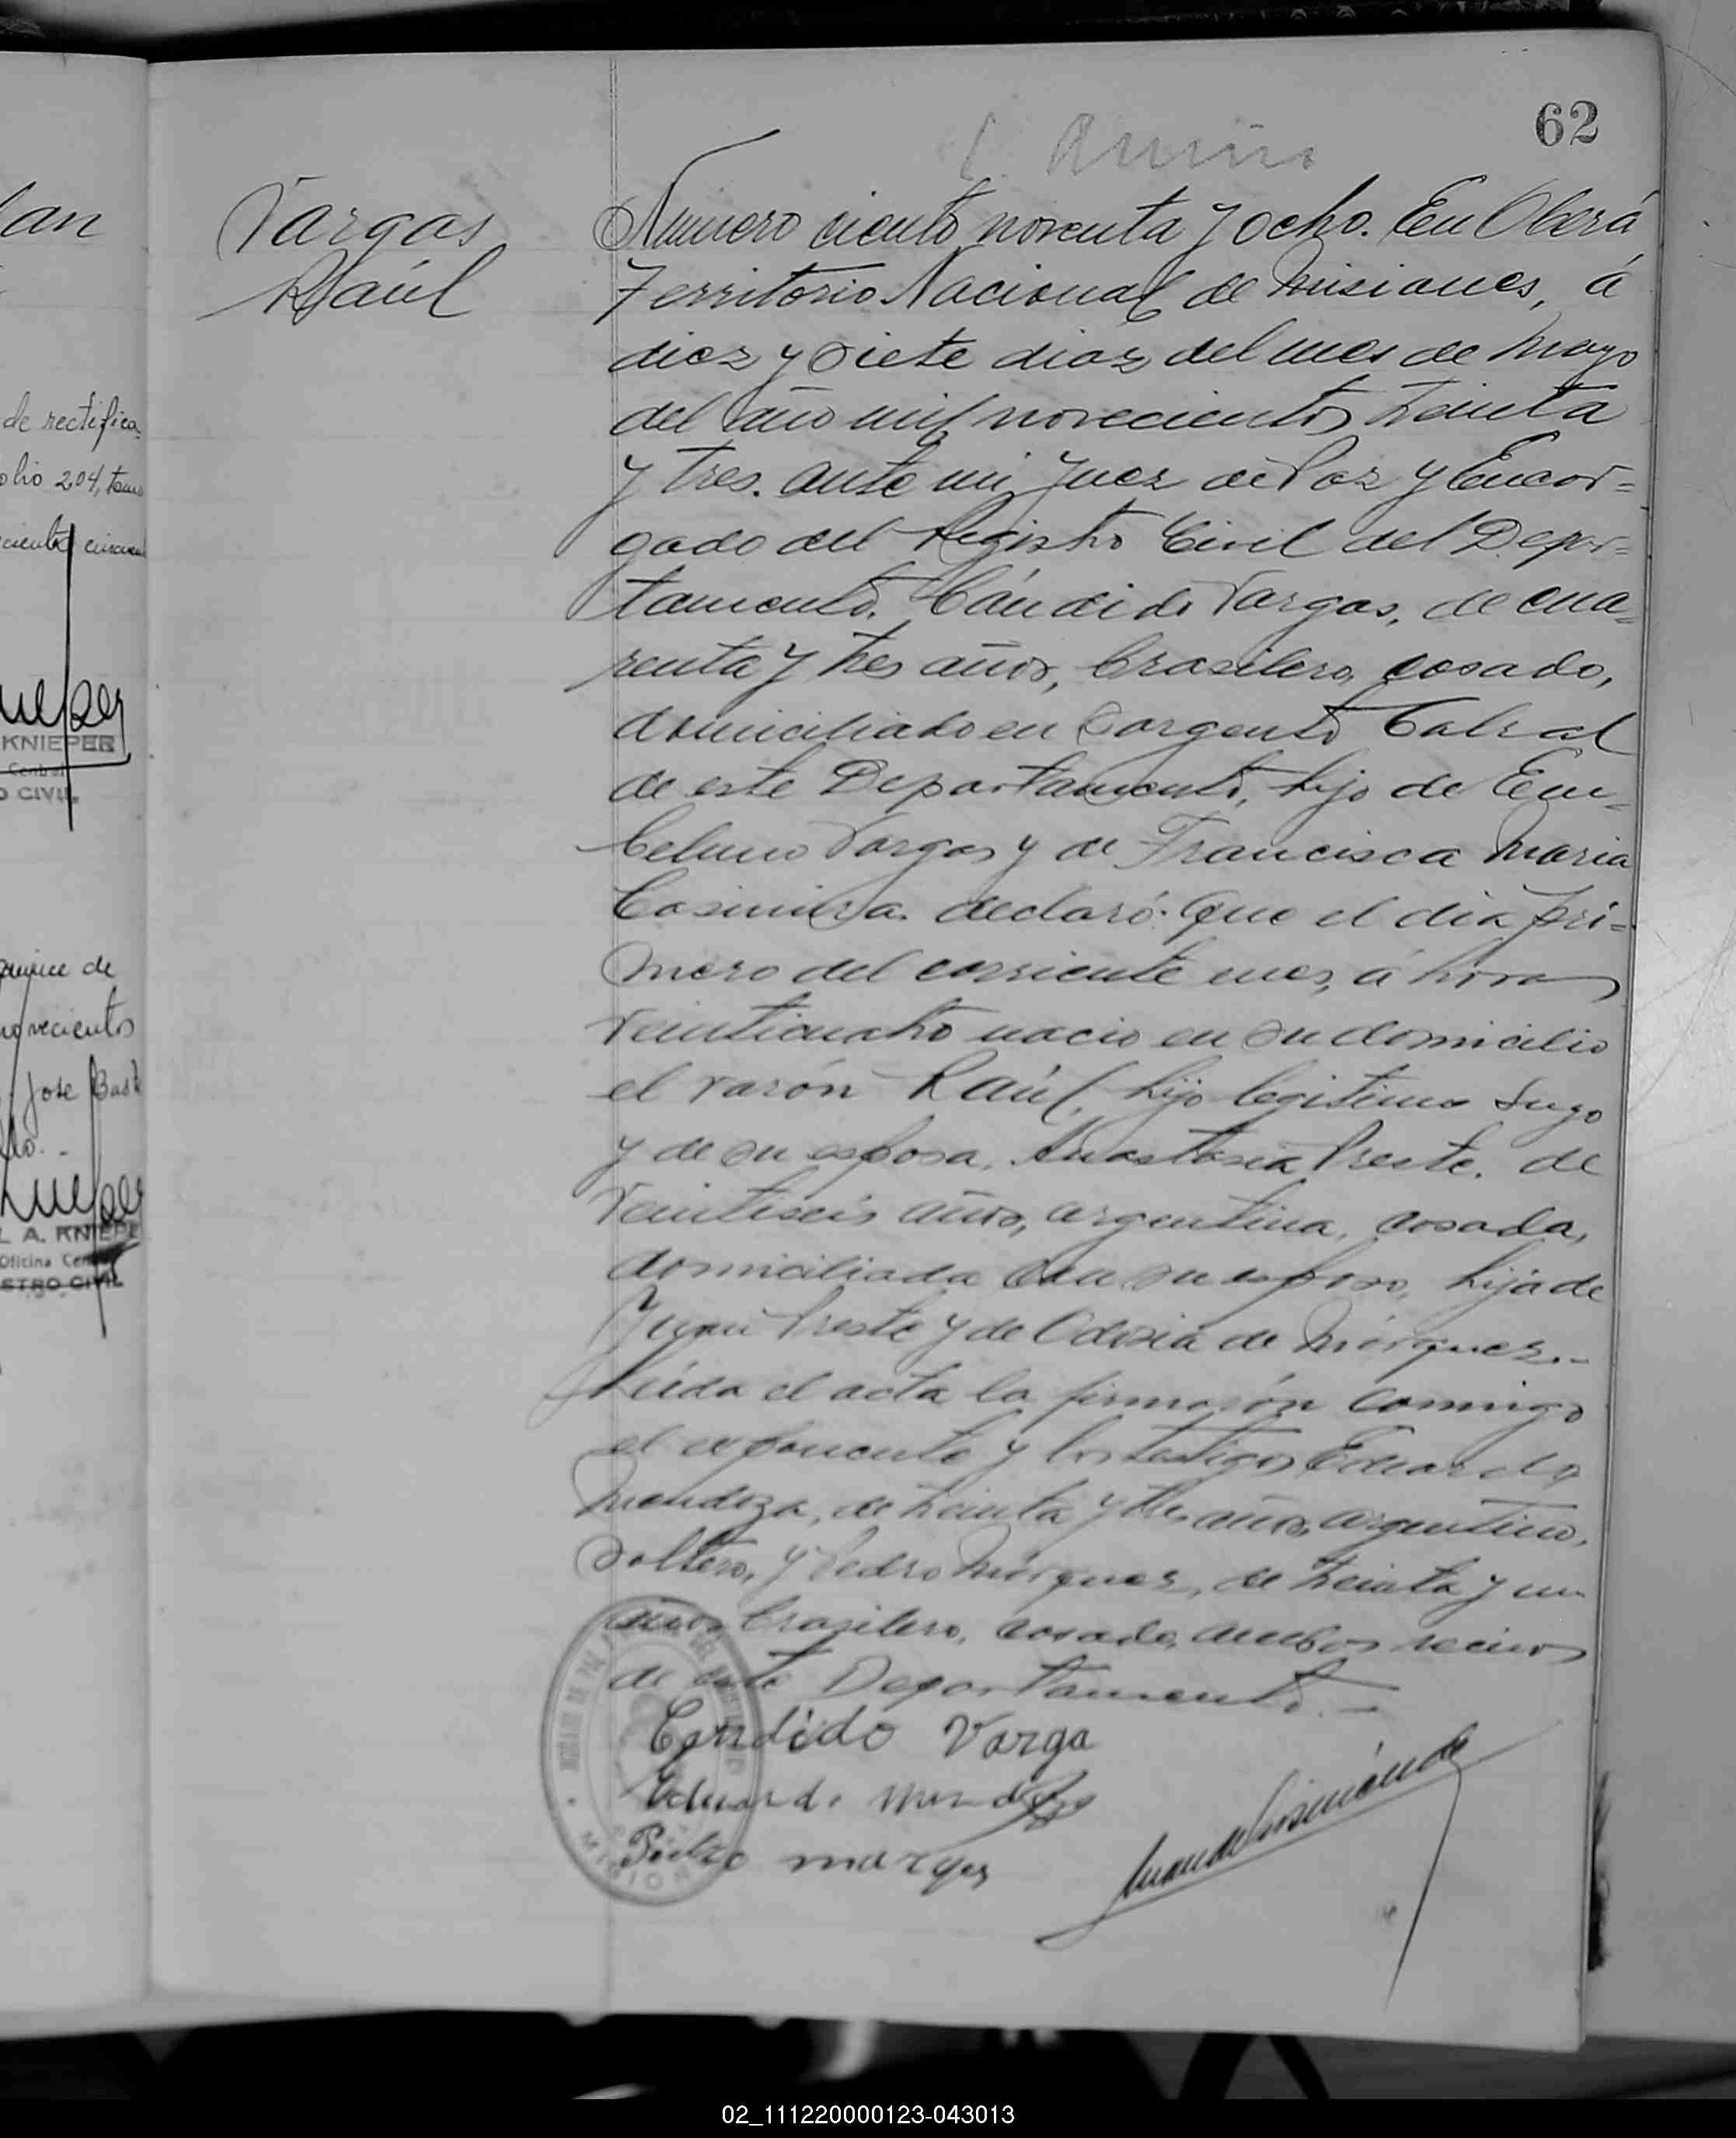 62
Vargas
Raúl
Numero ciento noventa y ocho. En Oberá
Territorio Nacional de Misiones, á
diez y siete dias del mes de Mayo
del año mil novecientos treinta
y tres. ante mi Juez de Paz y Encar=
gado del Registro Civil del Depar=
tamento. Cándido Vargas, de cua=
renta y tres años, brasilero, casado,
domiciliado en Sargento Cabral
de este Departamento, hijo de
Vargas y de Francisca Maria
Casimira. declaró: Que el dia pri=
mero del corriente mes, á horas
veinticuatro nacio en su domicilio
el varón Raúl, hijo legitimo suyo
y de su esposa, Anastasia Preste. de
veintiseis años, argentina, casada,
domiciliada con su esposo, hija de
Juan Preste y de Odosia de Márquez.-
Leida el acta la firmarón conmigo
el exponente y los testigos Eduardo
Mendoza, de treinta y tres años, argentino,
soltero, y Pedro Márquez, de treinta y un
años brasilero, casado, ambos vecinos
de este Departamento.-
Candido Varga
Eduardo Mendoza
Pedro marques
de rectifica-
olio 204, tomo
KNIEPER
Central
O CIVIL
quince de
novecientos
Jose
do.-
L A. KNIEPE
Oficina Cen
STRO CIVIL
MISION
02_111220000123-043013